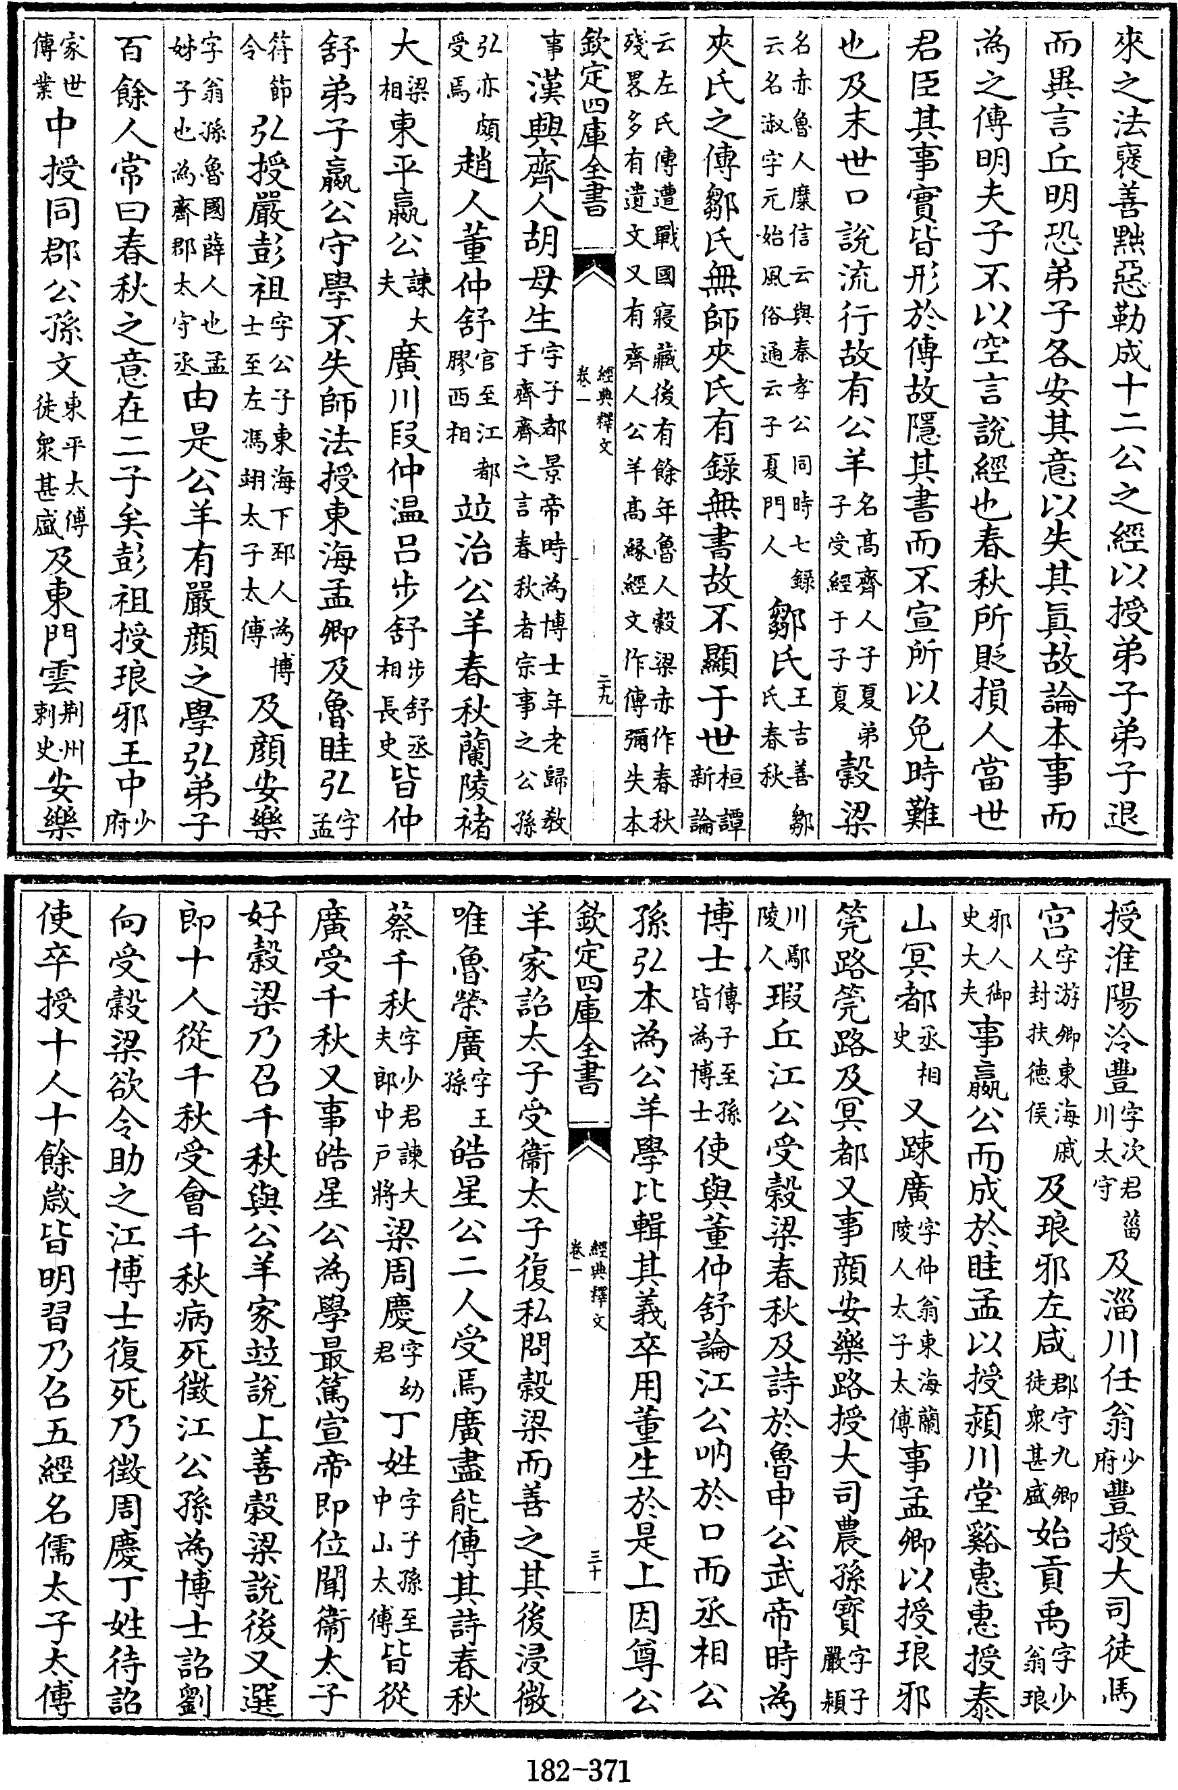 來之法褒善黜惡勒成十二公之經以授弟子弟子退
而異言丘明恐弟子各安其意以失其眞故論本事而
為之傳明夫子不以空言說經也春秋所貶損人當世
君臣其事實皆形於傳故隱其書而不宣所以免時難
也及末世口說流行故有公羊名髙齊人子夏弟子受經于子夏穀梁
名赤魯人糜信云與秦孝公同時七録云名淑字元始風俗通云子夏門人鄒氏王吉善鄒氏春秋
夾氏之傳鄒氏無師夾氏有錄無書故不顯于世桓譚新論
云左氏傳遭戰國寝藏後有餘年魯人穀梁赤作春秋殘畧多有遺文又有齊人公羊髙緣經文作傳彌失本
欽定四庫全書
經典釋文
卷一
二十九
事漢興齊人胡母生字子都景帝時為博士年老歸教于齊齊之言春秋者宗事之公孫
弘亦頗受焉趙人董仲舒官至江都膠西相竝治公羊春秋蘭陵褚
大梁相東平嬴公諫大夫廣川段仲温吕步舒步舒丞相長史皆仲
舒弟子嬴公守學不失師法授東海孟卿及魯眭弘字孟
符節令弘授嚴彭祖字公子東海下邳人為博士至左馮翊太子太傅及顔安樂
字翁孫魯國薛人也孟姊子也為齊郡太守丞由是公羊有嚴顔之學弘弟子
百餘人常曰春秋之意在二子矣彭祖授琅邪王中少府
家世傳業中授同郡公孫文東平太傅徒衆甚盛及東門雲荆州刺史安樂
授淮陽泠豐字次君菑川太守及淄川任翁少府豐授大司徒馬
宫字游卿東海戚人封扶德侯及琅邪左咸郡守九卿徒衆甚盛始貢禹字少翁琅
邪人御史大夫事嬴公而成於眭孟以授潁川堂谿惠惠授泰
山冥都丞相史又踈廣字仲翁東海蘭陵人太子太傅事孟卿以授琅邪
筦路筦路及冥都又事顔安樂路授大司農孫寳字子嚴潁
川鄢陵人瑕丘江公受穀梁春秋及詩於魯申公武帝時為
博士傳子至孫皆為博士使與董仲舒論江公呐於口而丞相公
孫弘本為公羊學比輯其義卒用董生於是上因尊公
欽定四庫全書
經典釋文
卷一
三十
羊家詔太子受衞太子復私問穀梁而善之其後浸微
唯魯榮廣字王孫皓星公二人受焉廣盡能傳其詩春秋
蔡千秋字少君諫大夫郎中户將梁周慶字幼君丁姓字子孫至中山太傅皆從
廣受千秋又事皓星公為學最篤宣帝即位聞衞太子
好穀梁乃召千秋與公羊家竝說上善穀梁說後又選
郎十人從千秋受會千秋病死徵江公孫為博士詔劉
向受穀梁欲令助之江博士復死乃徵周慶丁姓待詔
使卒授十人十餘歲皆明習乃召五經名儒太子太傅
182-371